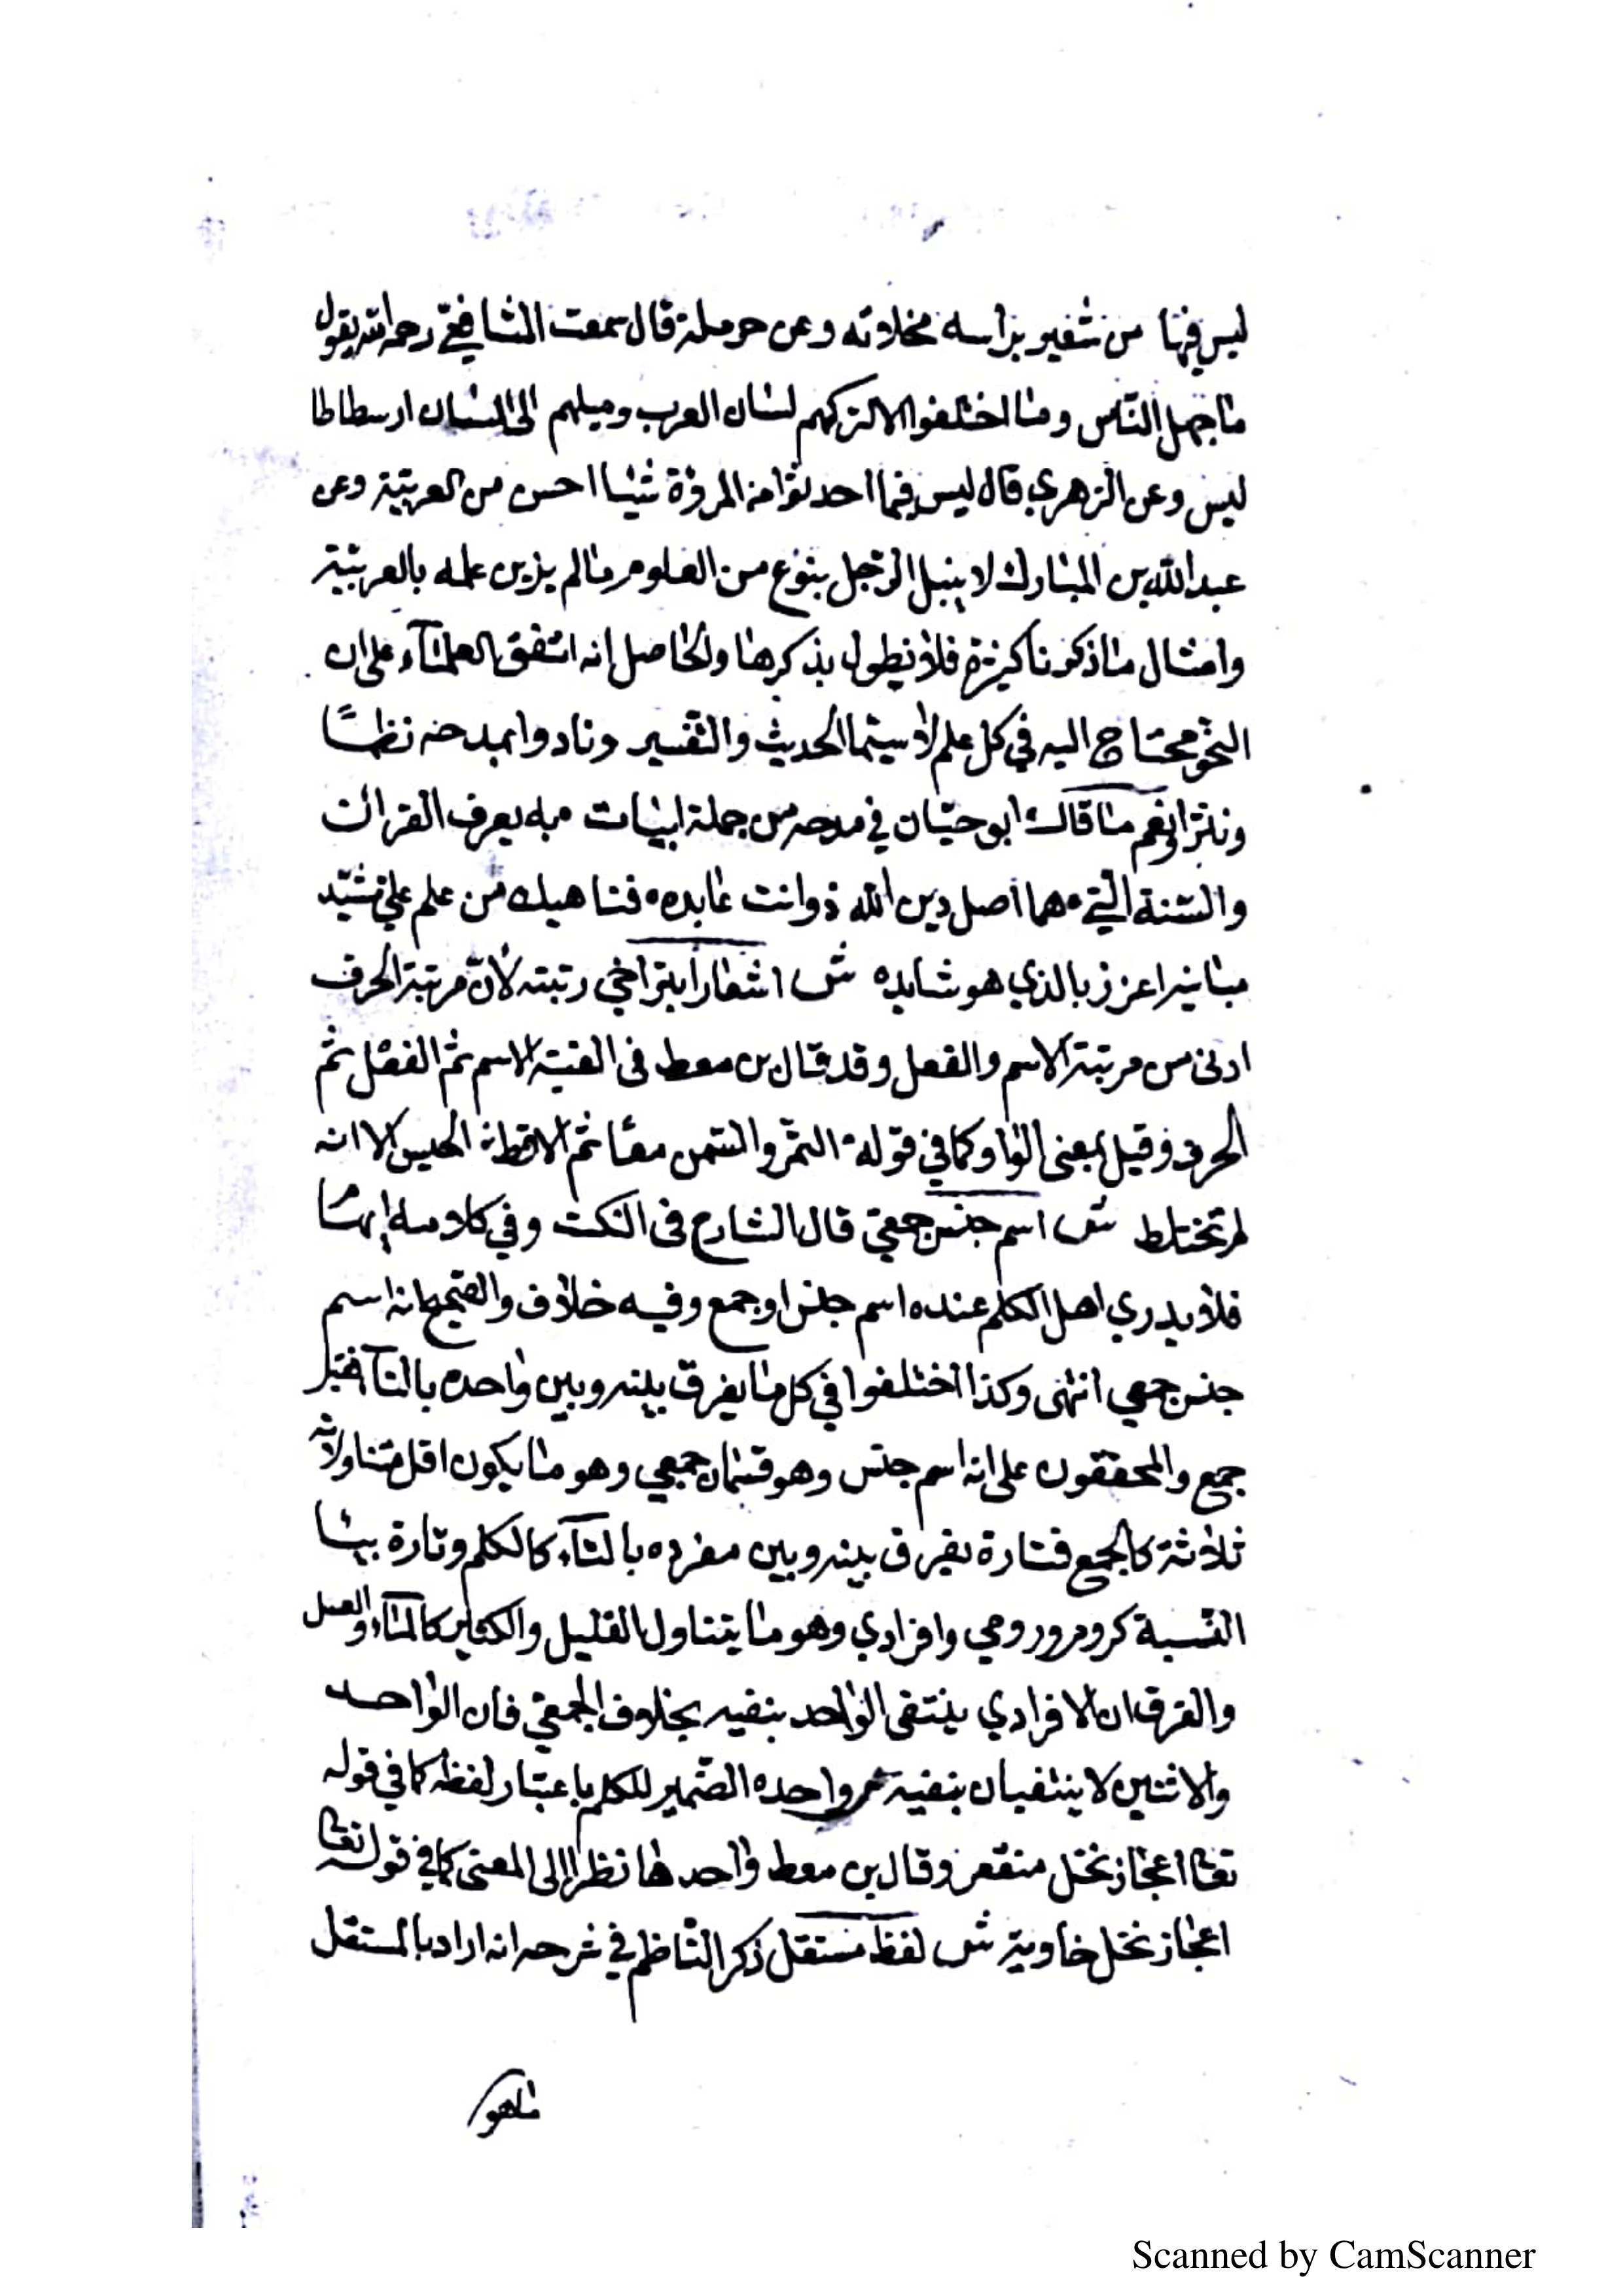 ليس فيها من شعير براسه مخلاته وعن حرملة قال سمعت الشافعيّ رحمه الله يقول
ما جهل الناس وما اختلفوا الا لتركهم لسان العرب وميلهم الى لسان ارسطاطا
ليس وعن الزهري قال ليس فيما احدثوا من المروة شيا احسن من العربيّة وعن
عبد الله بن المبارك لا ينبل الرّجل بنوع من العلوم ما لم يزين علمه بالعربيّة
وامثال ما ذكرنا كثيرة فلا نطول بذكرها والحاصل انه اتفق العلمآء على ان
النحو محتاج اليه في كل علم لا سيّما الحديث والتفسير ونادوا بمدحه نظمًا
ونثرا نعم ما قاله ابو حيّان في مدحه من جملة ابيات ه به يعرف القران
والسّنة التي ه هما اصل دين الله ذو انت عابده ه فناهيك من علم علي شيّد
مبانيه اعزز بالذي هو شايده ش اشعارا بتراخي رتبته لانّ مرتبة الحرف
ادنى من مرتبة الاسم والفعل وقد قال بن معط في الفيته الاسم ثم الفعل ثم
الحرف وقيل بمعنى الواو كما في قوله ه التمر والسّمن معًا ثم الاقط ه الحيس الا انه
لم تختلط ش اسم جنس جمعيّ قال الشارح في النكت وفي كلامه ابهامًا
فلا يدري اهل الكلم عنده اسم جنس او جمع وفيه خلاف والصّحيح انه اسم
جنس جمعي انتهى وكذا اختلفوا في كل ما يفرق بينه وبين واحده بالتآء فقيل
جمع والمحققون على انه اسم جنس وهو قسمان جمعي وهو ما يكون اقل متناولاته
ثلاثة كالجمع فتارة يفرق بينه وبين مفرده بالتآء كالكلم وتارة بيا
النّسبة كروم ورومي وافرادي وهو ما يتناول القليل والكثير كالمآء والعسل
والفرق ان الافرادي ينتفى الواحد بنفيه بخلاف الجمعيّ فان الواحد
والاثنين لا ينتفيان بنفيه م واحده الضّمير للكلم باعتبار لفظه كما في قوله
تعا اعجاز نخل منقعر وقال بن معط واحدها نظرا الى المعنى كما في قوله تعا
اعجاز نخل خاوية ش لفظ مستقل ذكر النّاظم في شرحه انه اراد بالمستقل
ما هو
Scanned by CamScanner